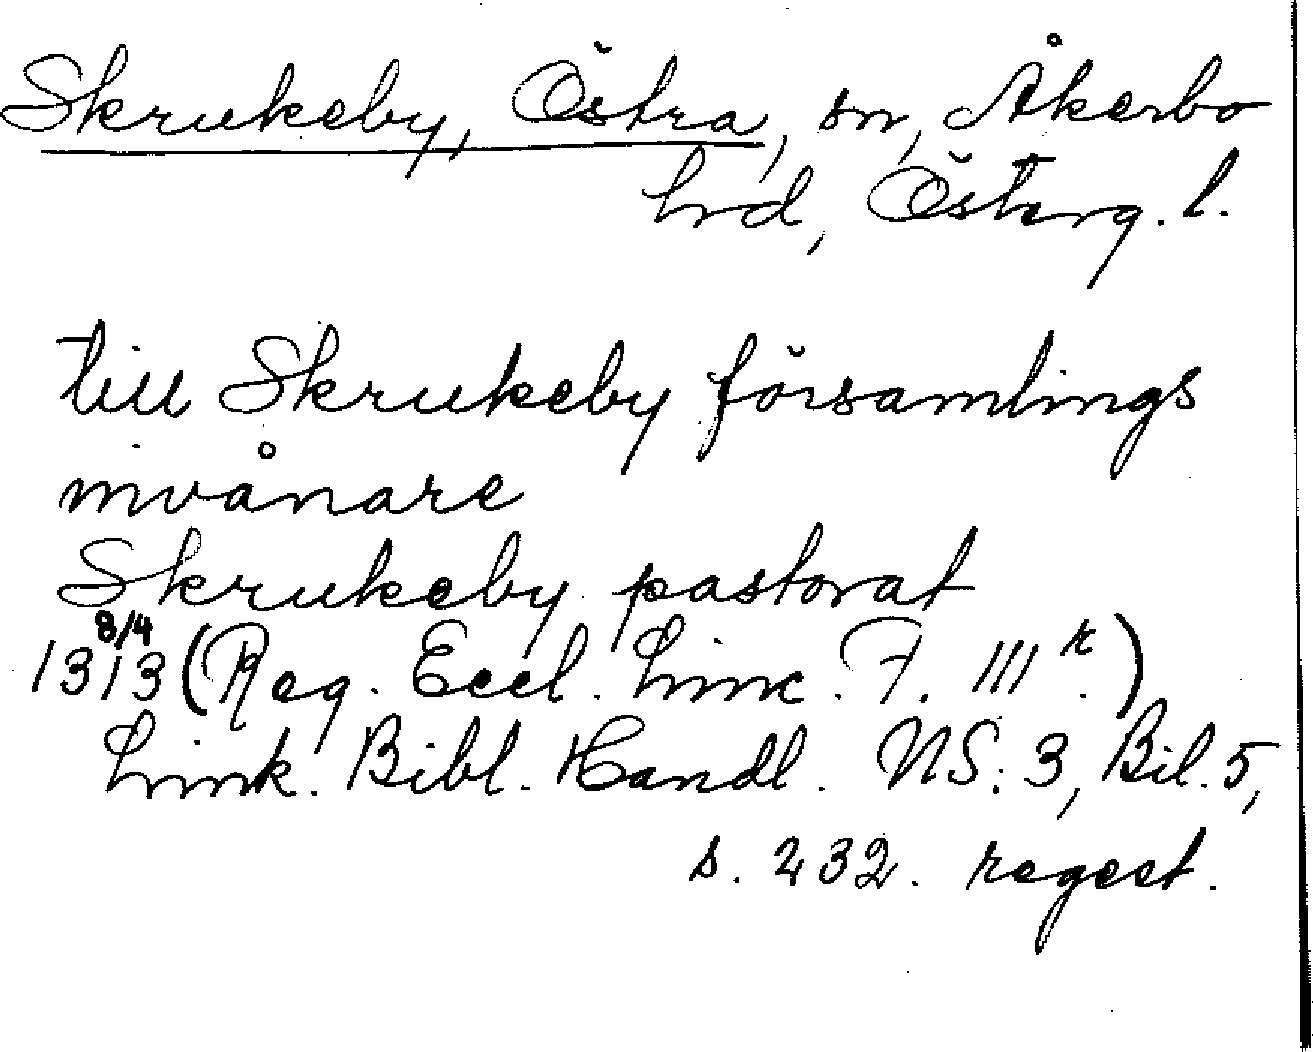 Skrukeby, Östra, sn, Åkerbo
hrd, Österg. l.
till Skrukeby församlings
invånare
Skrukeby pastorat
1313 8/4 (Reg. Eccl. Linc. F. 111 r.)
Link. Bibl. Handl. NS. 3, Bil. 5,
s. 232. regest.